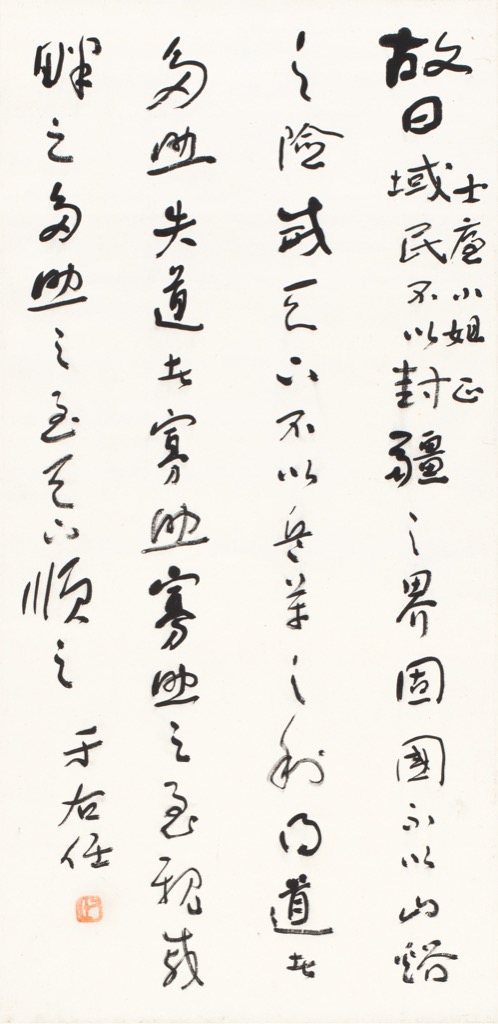 故曰域民不以封疆之界固國不以山谿
士小姐正
之險威天下不以兵革之利得道者
多助失道者寡助寡助之至親戚
畔之多助之至天下順之
于右任